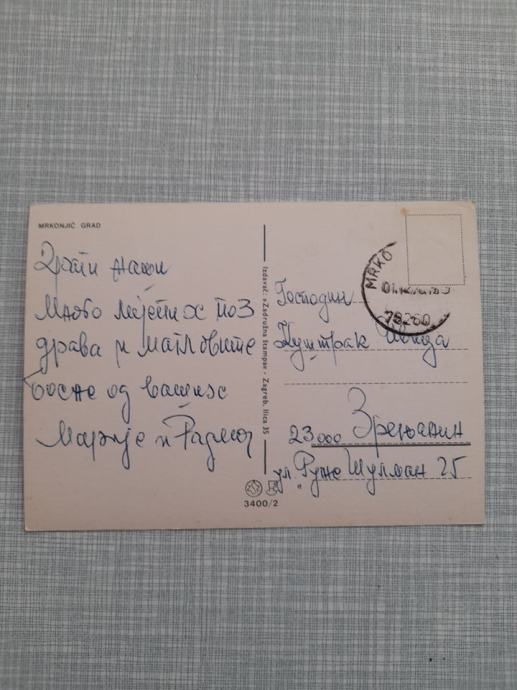 MRKONJIĆ GRAD
Драги наши
Много лијепих поз
драва из магловите
Босне од ваших
Марије и
Izdavač »Zadružna štampa« - Zagreb, Ilica 35
3400/2
MRKO
79260
Господин
Куштрак
23000 Зрењанин
ул. Руже Шулман 25